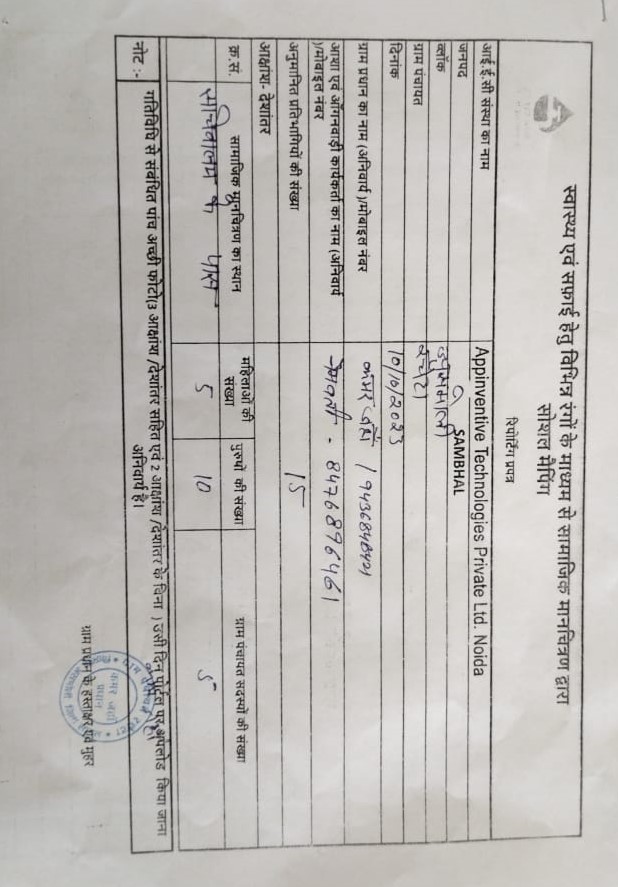 स्वास्थ्य एवं सफ़ाई हेतु विभिन्न रंगों के माध्यम से सामाजिक मानचित्रण द्वारा
सोशल मैपिंग
रिपोर्टिंग प्रपत्र
आई.ई.सी संस्था का नाम Appinventive Technologies Private Ltd. Noida
जनपद SAMBHAL
ब्लॉक
ग्राम पंचायत
दिनांक 10/10/2023
ग्राम प्रधान का नाम (अनिवार्य )/मोबाइल नंबर कमर जहाँ /
आशा एवं आँगनवाड़ी कार्यकर्ता का नाम (अनिवार्य
)/मोबाइल नंबर - 8476896461
अनुमानित प्रतिभागियों की संख्या 15
आक्षांश- देशांतर
क्र.सं. सामाजिक मानचित्रण का स्थान महिलाओं की संख्या पुरुषों की संख्या ग्राम पंचायत सदस्यों की संख्या
सचिवालय के पास 5 10 5
नोट :- गतिविधि से संबंधित पांच अच्छी फोटो(3 आक्षांश /देशांतर सहित एवं 2 आक्षांश /देशांतर के बिना ) उसी दिन पोर्टल पर अपलोड किया जाना
अनिवार्य है।
ग्राम प्रधान के हस्ताक्षर एवं मुहर